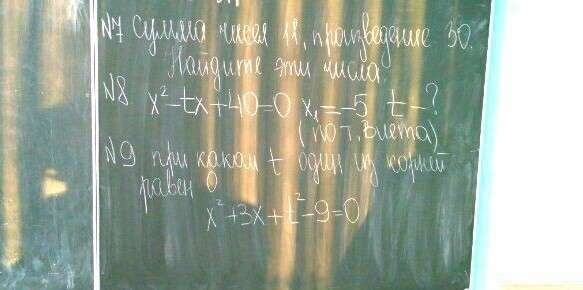 №7 Сумма чисел 11, произведение 30.
Найдите эти числа.
№8 x²-tx+40=0 x₁=-5 t-?
(по т. Виета)
№9 при каком t один из корней
равен 0
x²+3x+t²-9=0